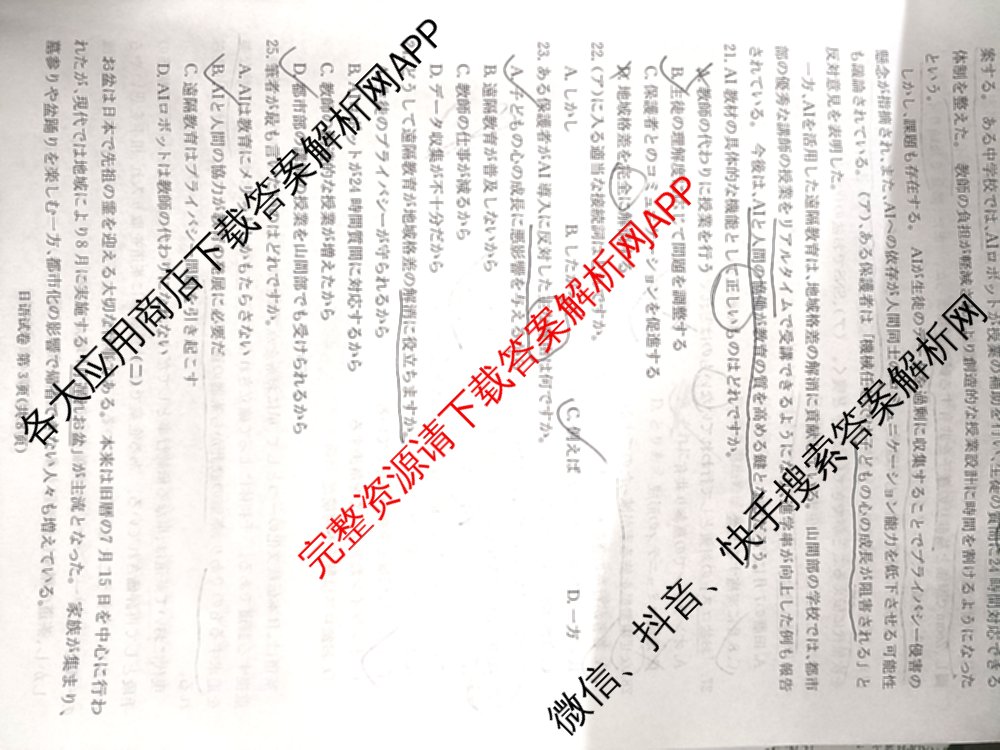 案する。ある中学校では、AIロボットが授業の補助を行い、生徒の質問に24時間対応できる
体制を整えた。教師の負担が軽減され、より創造的な授業設計に時間を割けるようになった
という。
しかし、課題も存在する。AIが生徒のデータを過剰に収集することでプライバシー侵害の
懸念が指摘され、また、AIへの依存が人間同士のコミュニケーション能力を低下させる可能性
も議論されている。（ア）、ある保護者は「機械任せでは子どもの心の成長が阻害される」と
反対意見を表明した。
一方、AIを活用した遠隔教育は、地域格差の解消に貢献する。山間部の学校では、都市
部の優秀な講師の授業をリアルタイムで受講できるようになり、進学率が向上した例も報告
されている。今後は、AIと人間の協働が教育の質を高める鍵となるだろう。
21. AI教材の具体的な機能として正しいものはどれですか。
A. 教師の代わりに授業を行う
B. 生徒の理解度に 問題を調整する
C. 保護者とのコミュニケーションを促進する
D. 地域格差を完全に
22. （ア）に入る適当な接続詞 ですか。
A. しかし
B. した
C. 例えば
D. 一方
23. ある保護者がAI導入に反対した は何ですか。
A. 子どもの心の成長に悪影響を与える
B. 遠隔教育が普及しないから
C. 教師の仕事が減るから
D. データ収集が不十分だから
どうして遠隔教育が地域格差の解消に役立ちますか。
のプライバシーが守られるから
B. ットが24時間質問に対応するから
C. 教 的な授業が増えたから
D. 都市部の 授業を山間部でも受けられるから
25. 筆者が最も言 はどれですか。
A. AIは教育にメ かもたらさない
B. AIと人間の協力が 展に必要だ
C. 遠隔教育はプライバシ を引き起こす
D. AIロボットは教師の代わ ない
（二）
お盆は日本で先祖の霊を迎える大切な ある。本来は旧暦の7月15日を中心に行わ
れたが、現代では地域により8月に実施する「 れお盆」が主流となった。家族が集まり、
墓参りや盆踊りを楽しむ一方、都市化の影響で帰省 ない人々も増えている。
日语试卷 第3页（共8页）
各大应用商店下载答案解析网APP
完整资源请下载答案解析网APP
微信、抖音、快手搜索答案解析网